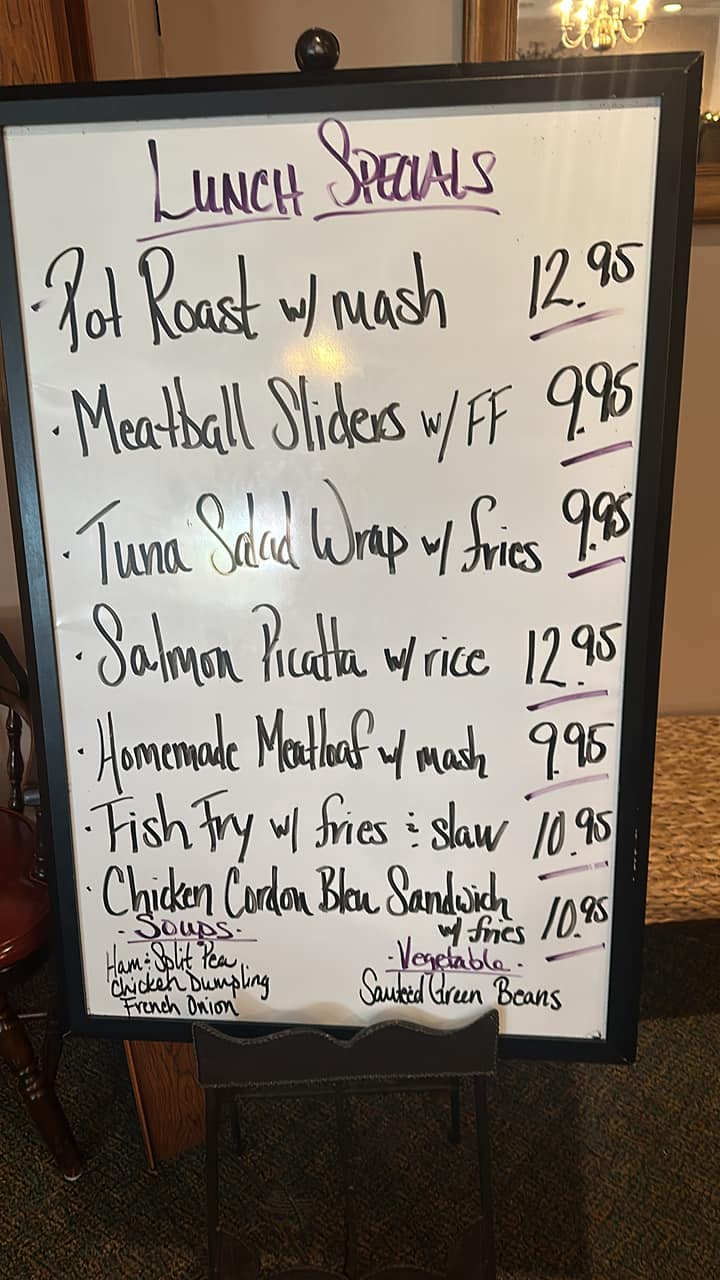 LUNCH SPECIALS
· Pot Roast w/ mash 12.95
· Meatball Sliders w/ FF 9.95
· Tuna Salad Wrap w/ fries 9.95
· Salmon Picatta w/ rice 12.95
· Homemade Meatloaf w/ mash 9.95
· Fish Fry w/ fries & slaw 10.95
· Chicken Cordon Bleu Sandwich
w/ fries 10.95
- Soups -
Ham & Split Pea
Chicken Dumpling
French Onion
- Vegetable -
Sauteed Green Beans